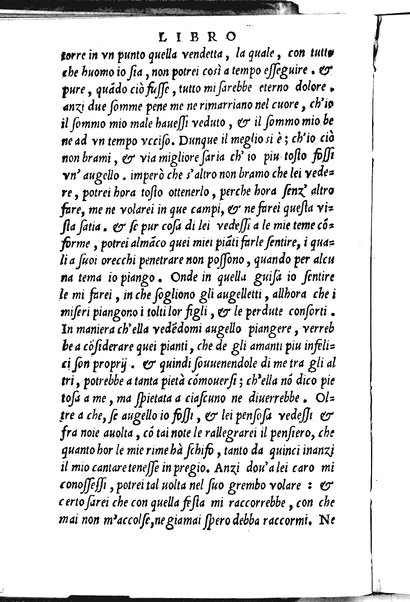 LIBRO
torre in vn punto quella vendetta, la quale, con tutto
che huomo io sia, non potrei così a tempo esseguire. &
pure, quādo ciò fusse, tutto mi sarebbe eterno dolore.
anzi due somme pene me ne rimarriano nel cuore, ch'io
il sommo mio male hauessi veduto, & il sommo mio be
ne ad vn tempo vcciso. Dunque il meglio si è; ch'io ciò
non brami, & via migliore saria ch' io piu tosto fossi
vn' augello. imperò che s'altro non bramo che lei vede-
re, potrei hora tosto ottenerlo, perche hora senz' altro
fare, me ne volarei in que campi, & ne farei questa vi-
sta satia. & se pur cosa di lei vedessi a le mie teme cō-
forme, potrei almāco quei miei piāti farle sentire, i qua-
li a suoi orecchi penetrare non possono, quando per alcu
na tema io piango. Onde in quella guisa io sentire
le mi farei, in che sogliono gli augelletti, allhora che i
miseri piangono i tolti lor figli, & le perdute consorti.
In maniera ch'ella vedēdomi augello piangere, verreb
be a cōsiderare quei pianti, che de gli amanti piu infeli-
ci son proprij. & quindi souuenendole di me tra gli al
tri, potrebbe a tanta pietà cōmouersi; ch'ella nō dico pie
tosa a me, ma spietata a ciascuno ne diuerrebbe. Ol-
tre a che, se augello io fossi, & lei pensosa vedessi &
fra noie auolta, cō tai note le rallegrarei il pensiero, che
quanto hor le mie rime hà schifo, tanto da quinci inanzi
il mio cantare tenesse in pregio. Anzi dou'a lei caro mi
conossessi, potrei tal uolta nel suo grembo volare: &
certo sarei che con quella festa mi raccorrebbe, con che
mai non m'accolse, ne giamai spero debba raccormi. Ne